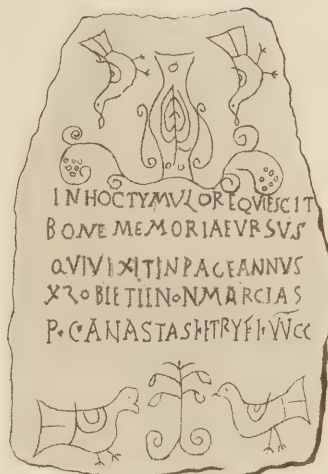 INHOCTYMVLOREQVIESCIT
BONEMEMORIAEVRSVS
QVIVIXITINPACEANNVS
OBIETIINONMARCIAS
P·C·ANASTASI·ETRVFI·VVCC